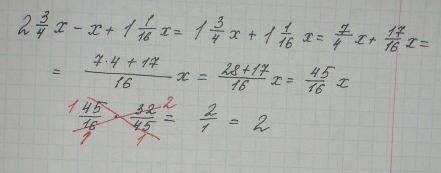 2 3/4 x - x + 1 1/16 x = 1 3/4 x + 1 1/16 x = 7/4 x + 17/16 x =
= (7·4+17)/16 x = (28+17)/16 x = 45/16 x
1 45/16 1 · 32 2/45 1 = 2/1 = 2